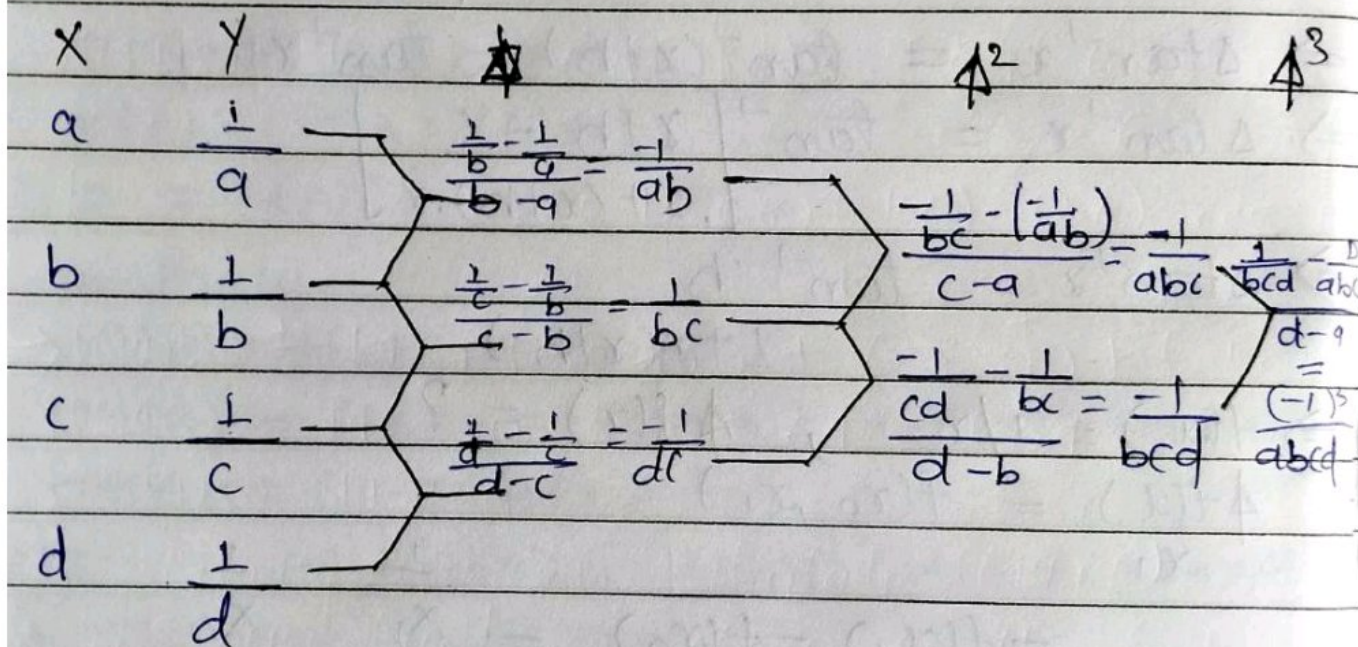 X Y ⍋ ⍋² ⍋³
a 1/a (1/b - 1/a)/(b - a) = -1/ab
(-1/bc - (-1/ab))/(c - a) = -1/abc
b 1/b (1/c - 1/b)/(c - b) = 1/bc
(1/bcd - 1/abc)/(d - a) = (-1)³/abcd
c 1/c (1/d - 1/c)/(d - c) = -1/dc
(-1/cd - 1/bc)/(d - b) = -1/bcd
d 1/d